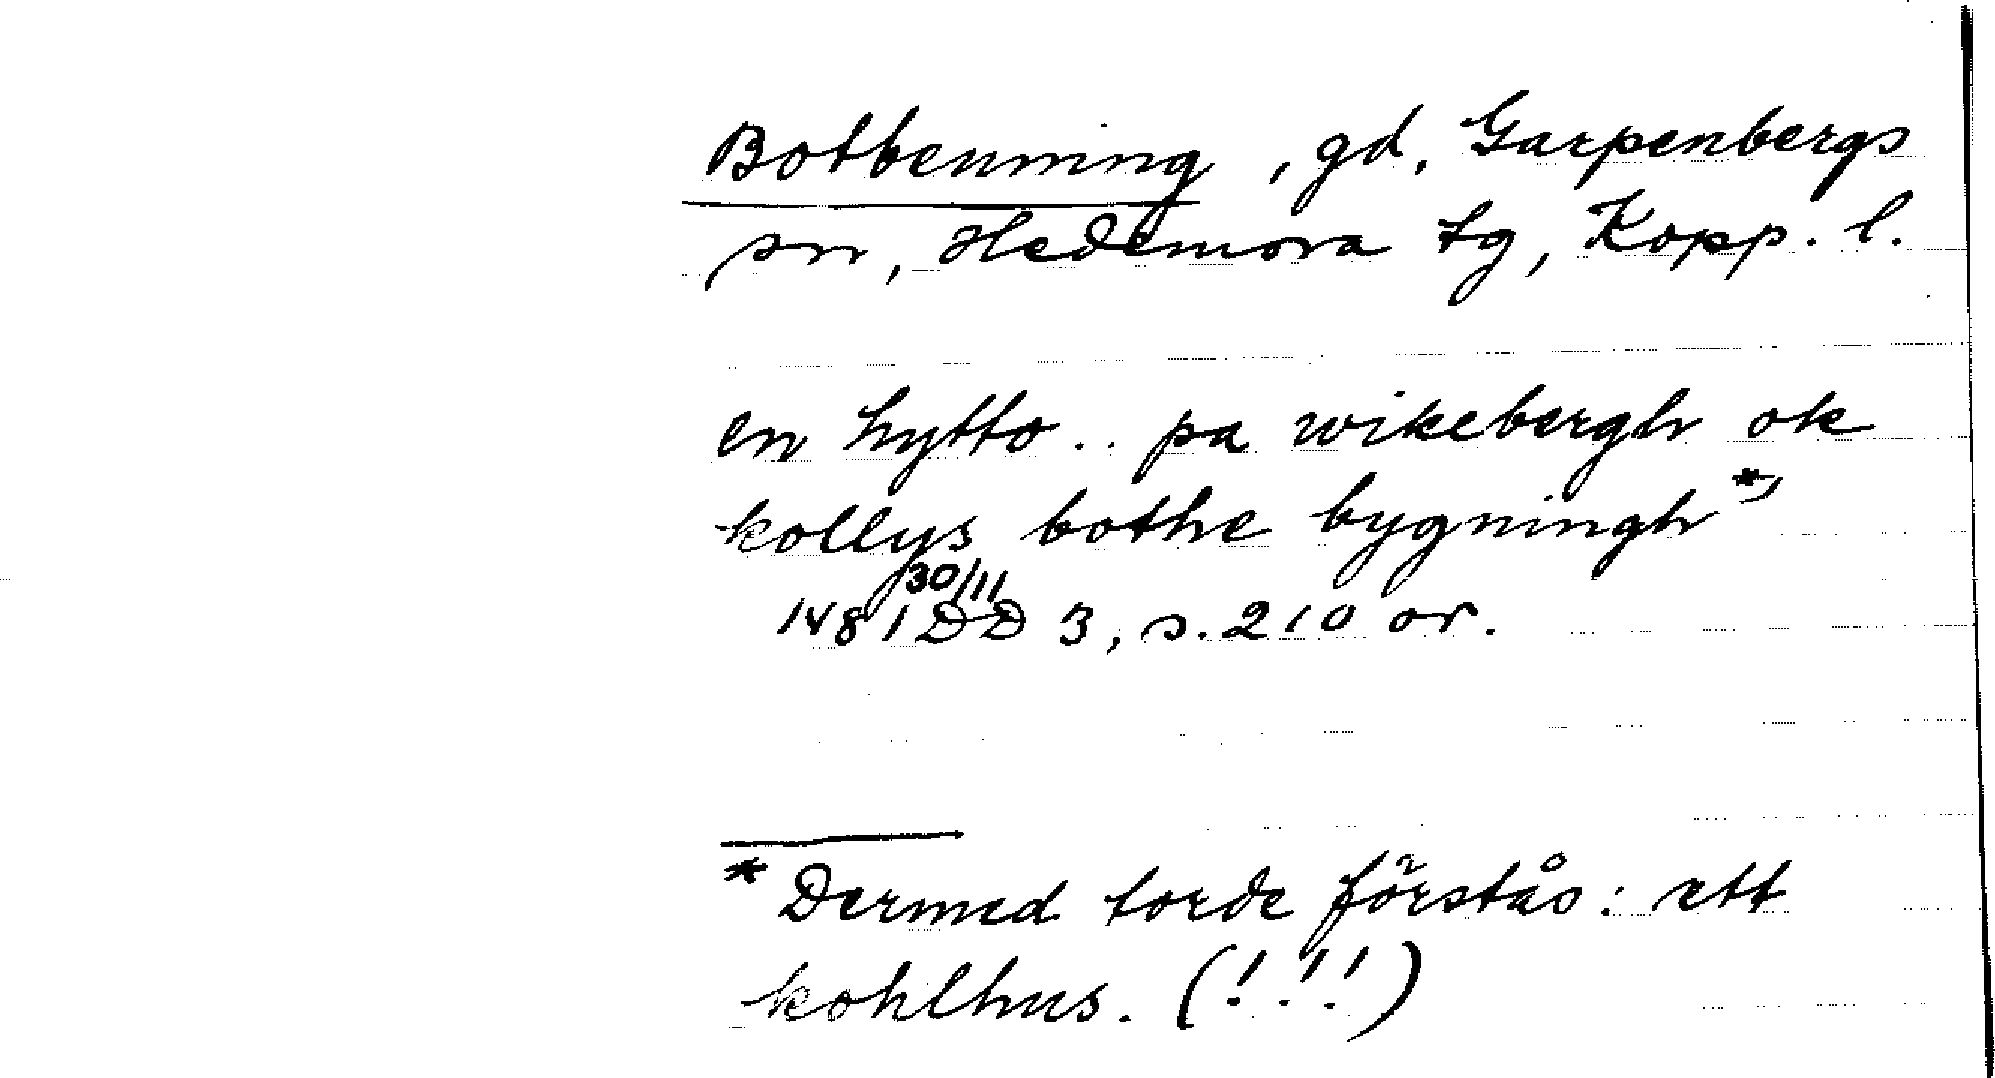 Botbenning, gd, Garpenbergs
sn, Hedemora tg, Kopp. l.
en hytto.. pa wikebergh ok
kollys bothe bygningh *)
1481 30/11 DD 3, s. 210 or.
* Dermed torde förstås: ett
kohlhus. (!!!)